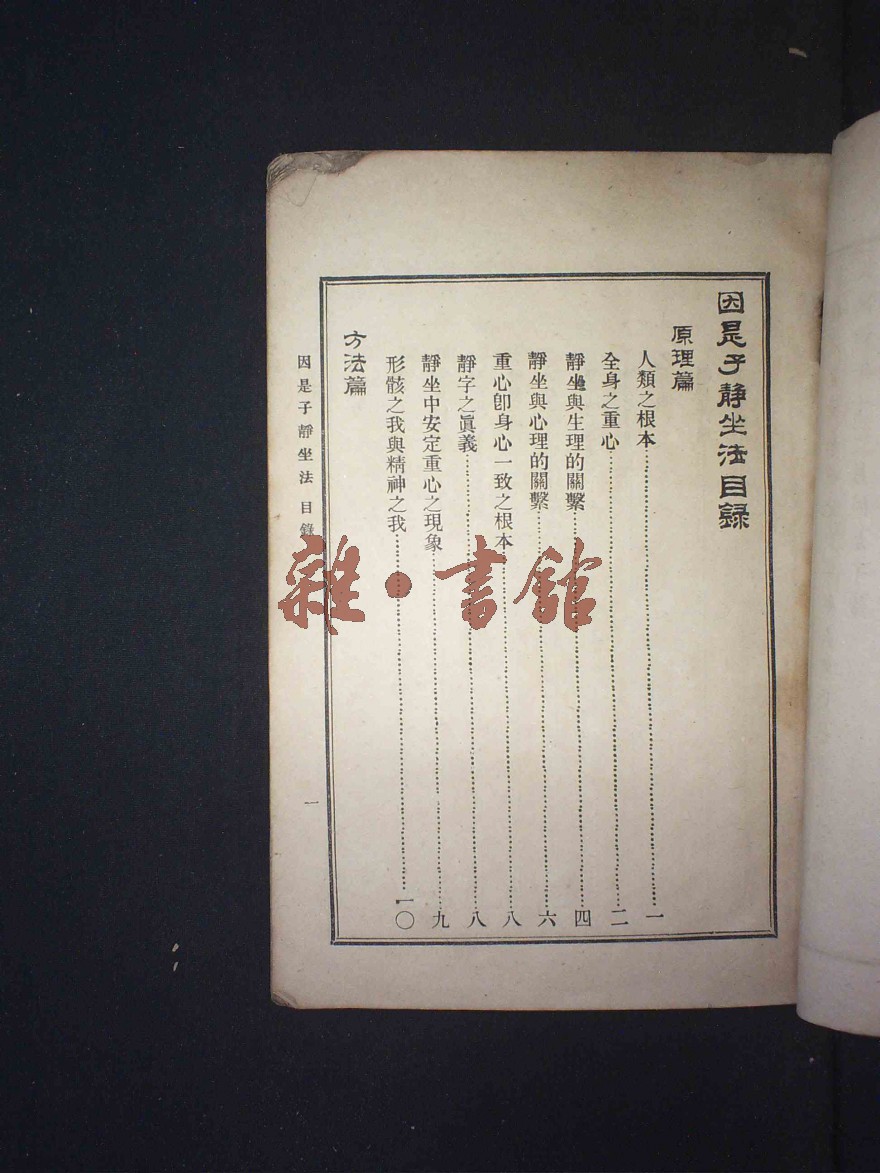 因是子靜坐法目録
原理篇
人類之根本……一
全身之重心……二
靜坐與生理的關繫……四
靜坐與心理的關繫……六
重心卽身心一致之根本……八
靜字之眞義……八
靜坐中安定重心之現象……九
形骸之我與精神之我……一〇
方法篇
因是子靜坐法 目錄
一
雜·書館